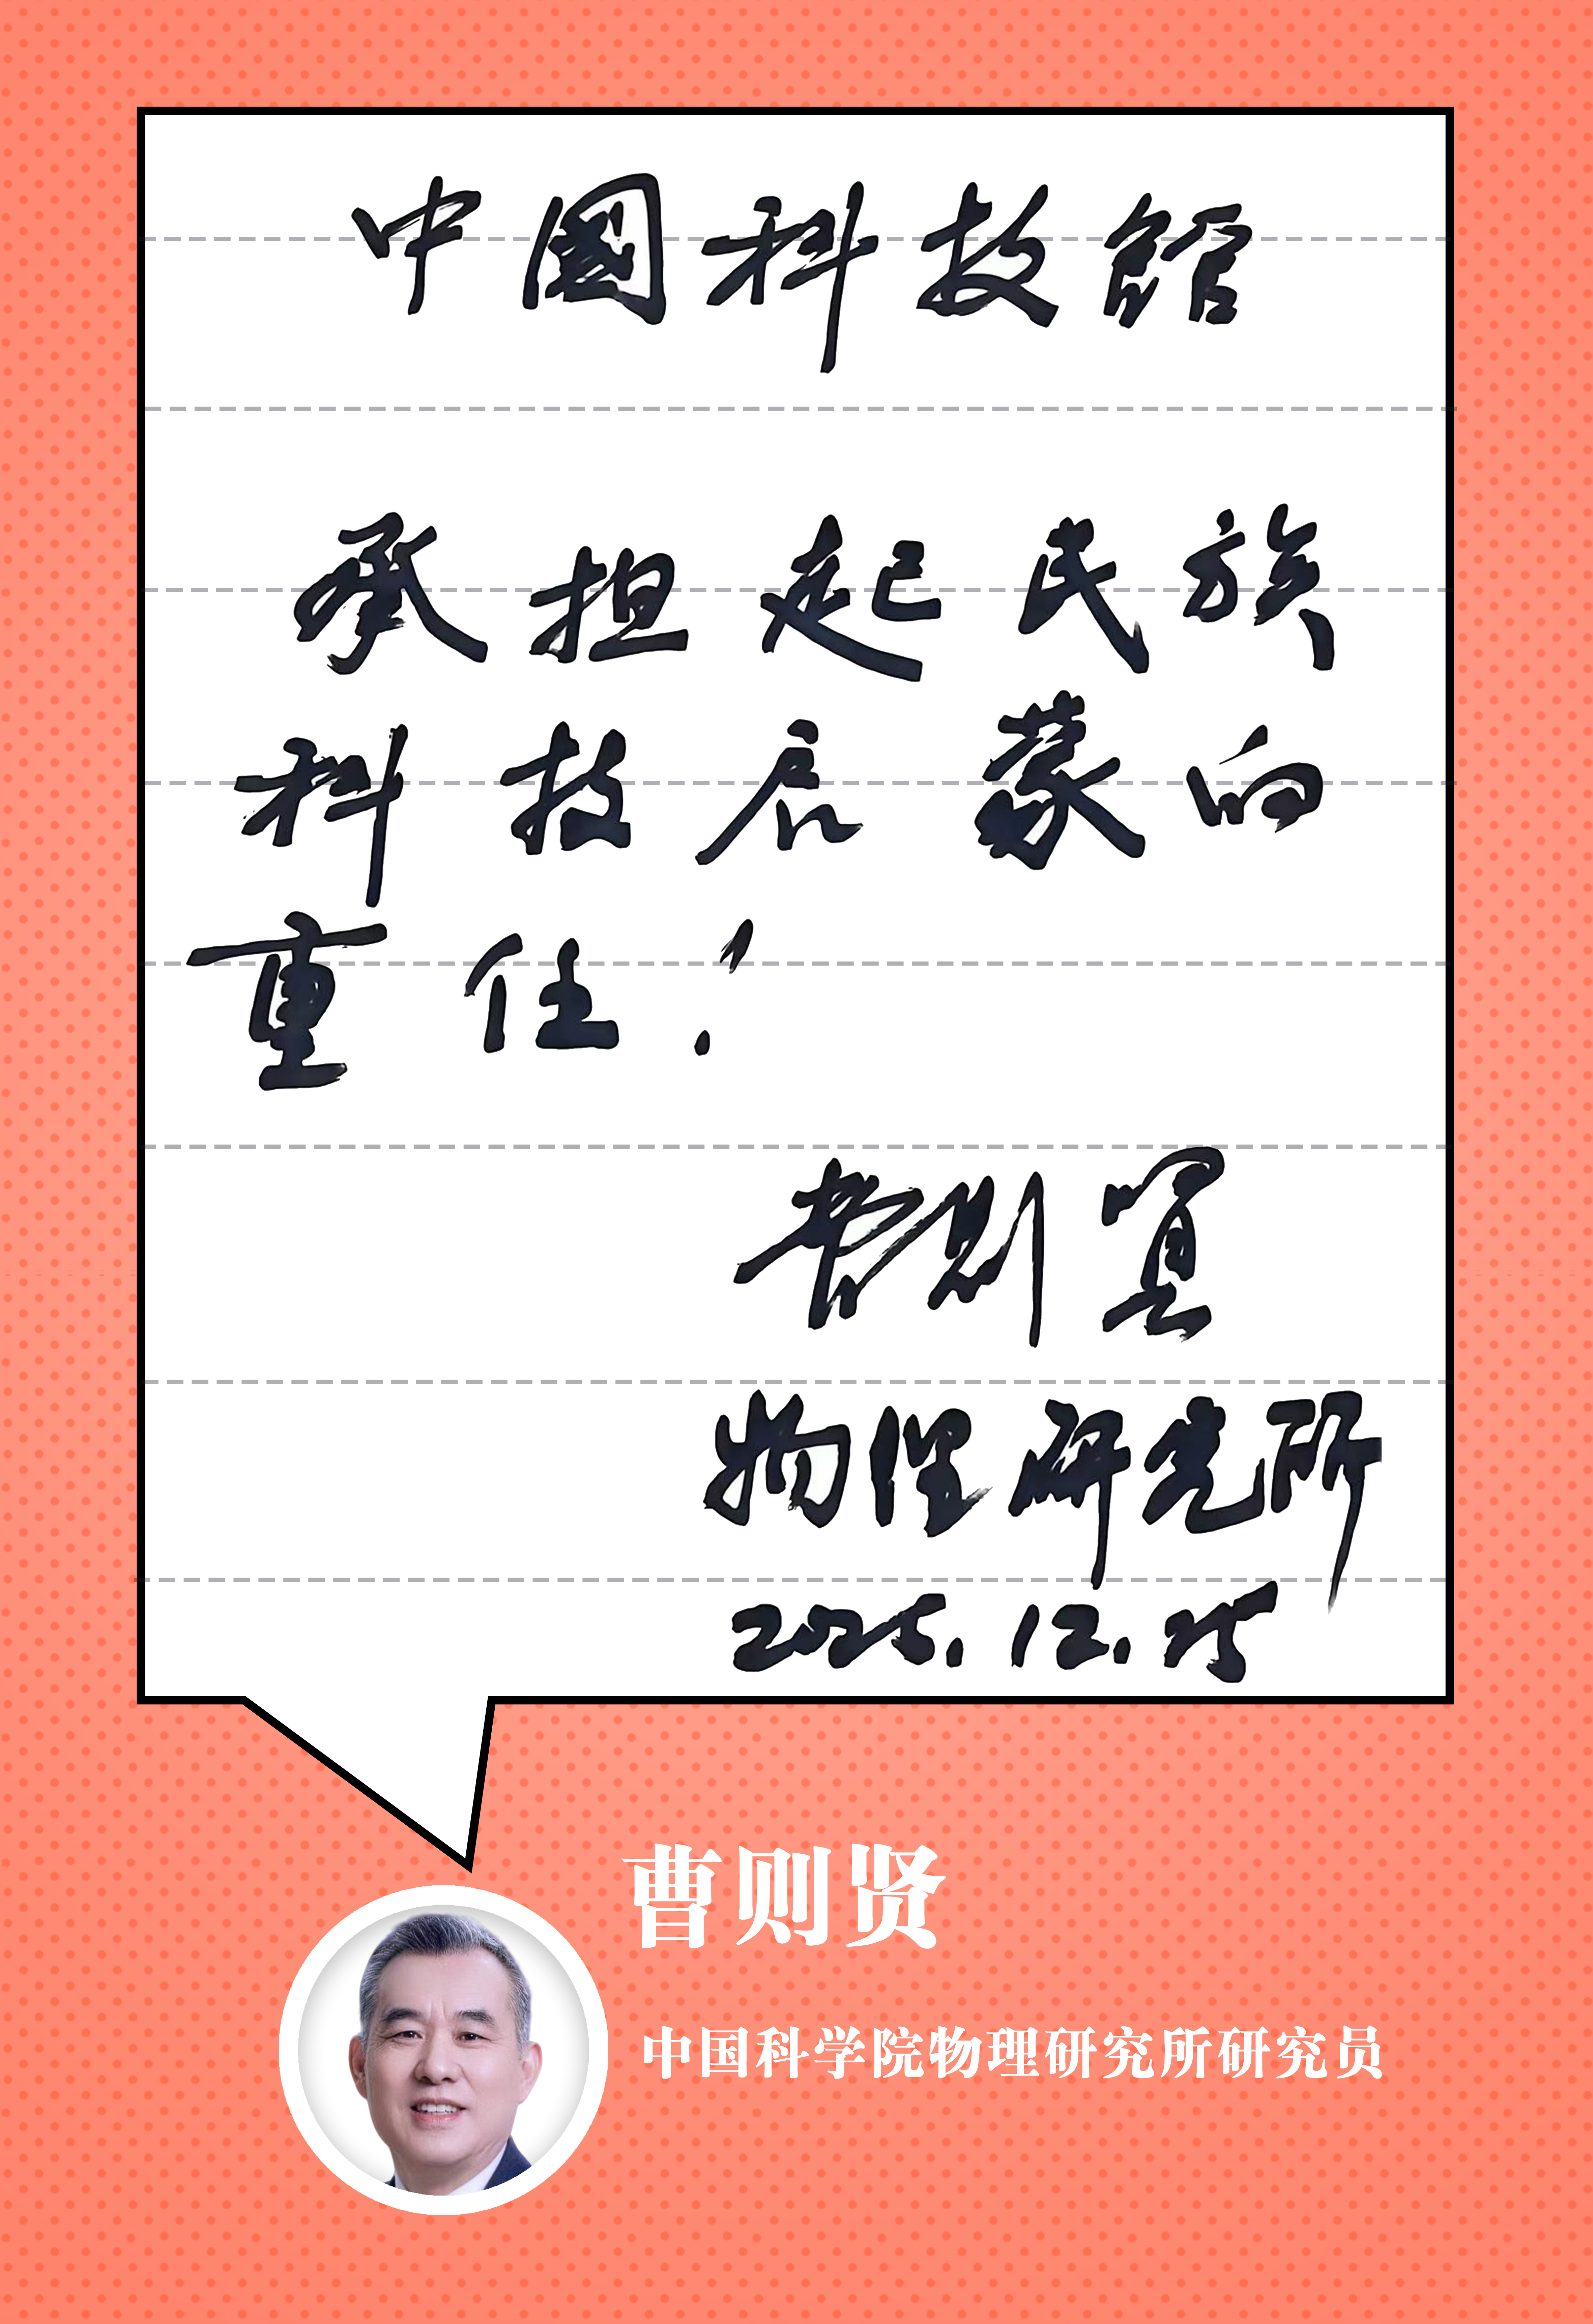 中國科技館
承担起民族
科技启蒙的
重任！
曹则贤
物理研究所
2025.12.25
曹则贤
中国科学院物理研究所研究员